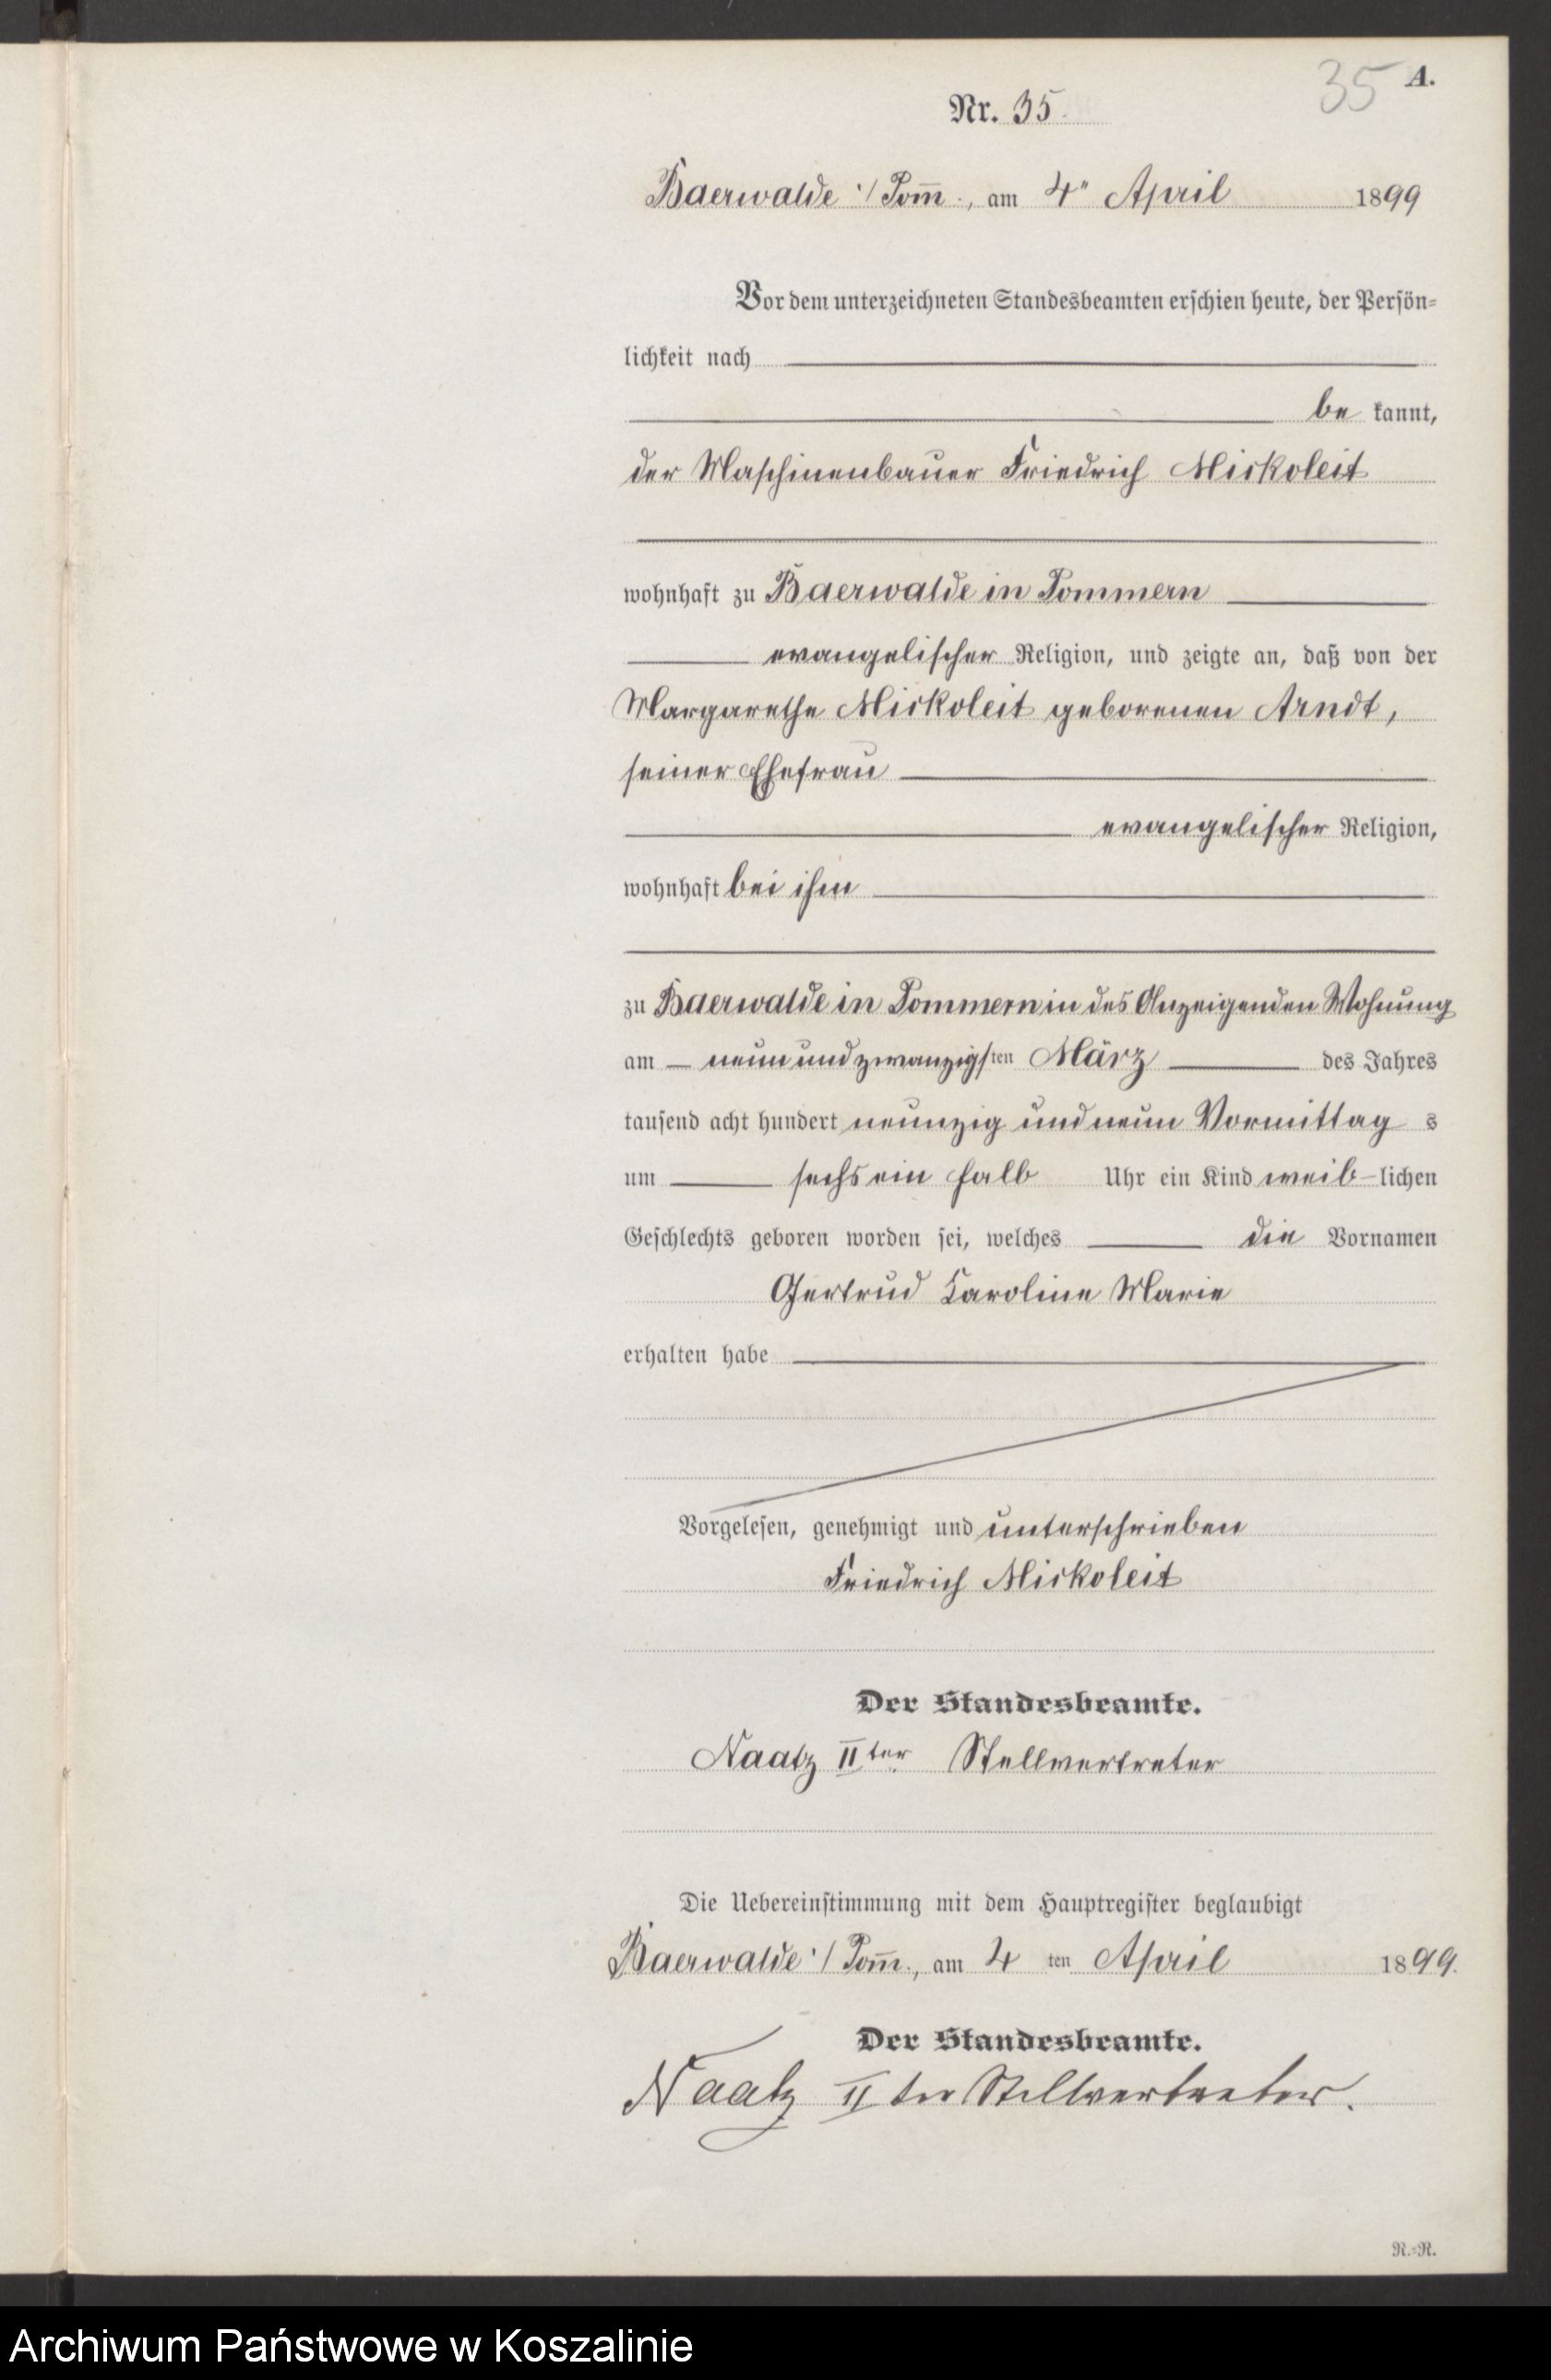 35 A.
Nr. 35.
Baerwalde i/Pom̄., am 4ten April 1899
Vor dem unterzeichneten Standesbeamten erschien heute, der Persön=
lichkeit nach
be kannt,
der Maschinenbauer Friedrich Miskoleit
wohnhaft zu Baerwalde in Pommern
evangelischer Religion, und zeigte an, daß von der
Margarethe Miskoleit geborenen Arndt,
seiner Ehefrau
evangelischer Religion,
wohnhaft bei ihm
zu Baerwalde in Pommern in des Anzeigenden Wohnung
am neunundzwanzigsten März des Jahres
tausend acht hundert neunzig und neun Vormittag s
um sechs ein halb Uhr ein Kind weib-lichen
Geschlechts geboren worden sei, welches die Vornamen
Gertrud Karoline Marie
erhalten habe
Vorgelesen, genehmigt und unterschrieben
Friedrich Miskoleit
Der Standesbeamte.
Naatz IIter Stellvertreter
Die Uebereinstimmung mit dem Hauptregister beglaubigt
Baerwalde i/Pom̄., am 4 ten April 1899.
Der Standesbeamte.
Naatz II ter Stellvertreter.
R.=R.
Archiwum Państwowe w Koszalinie